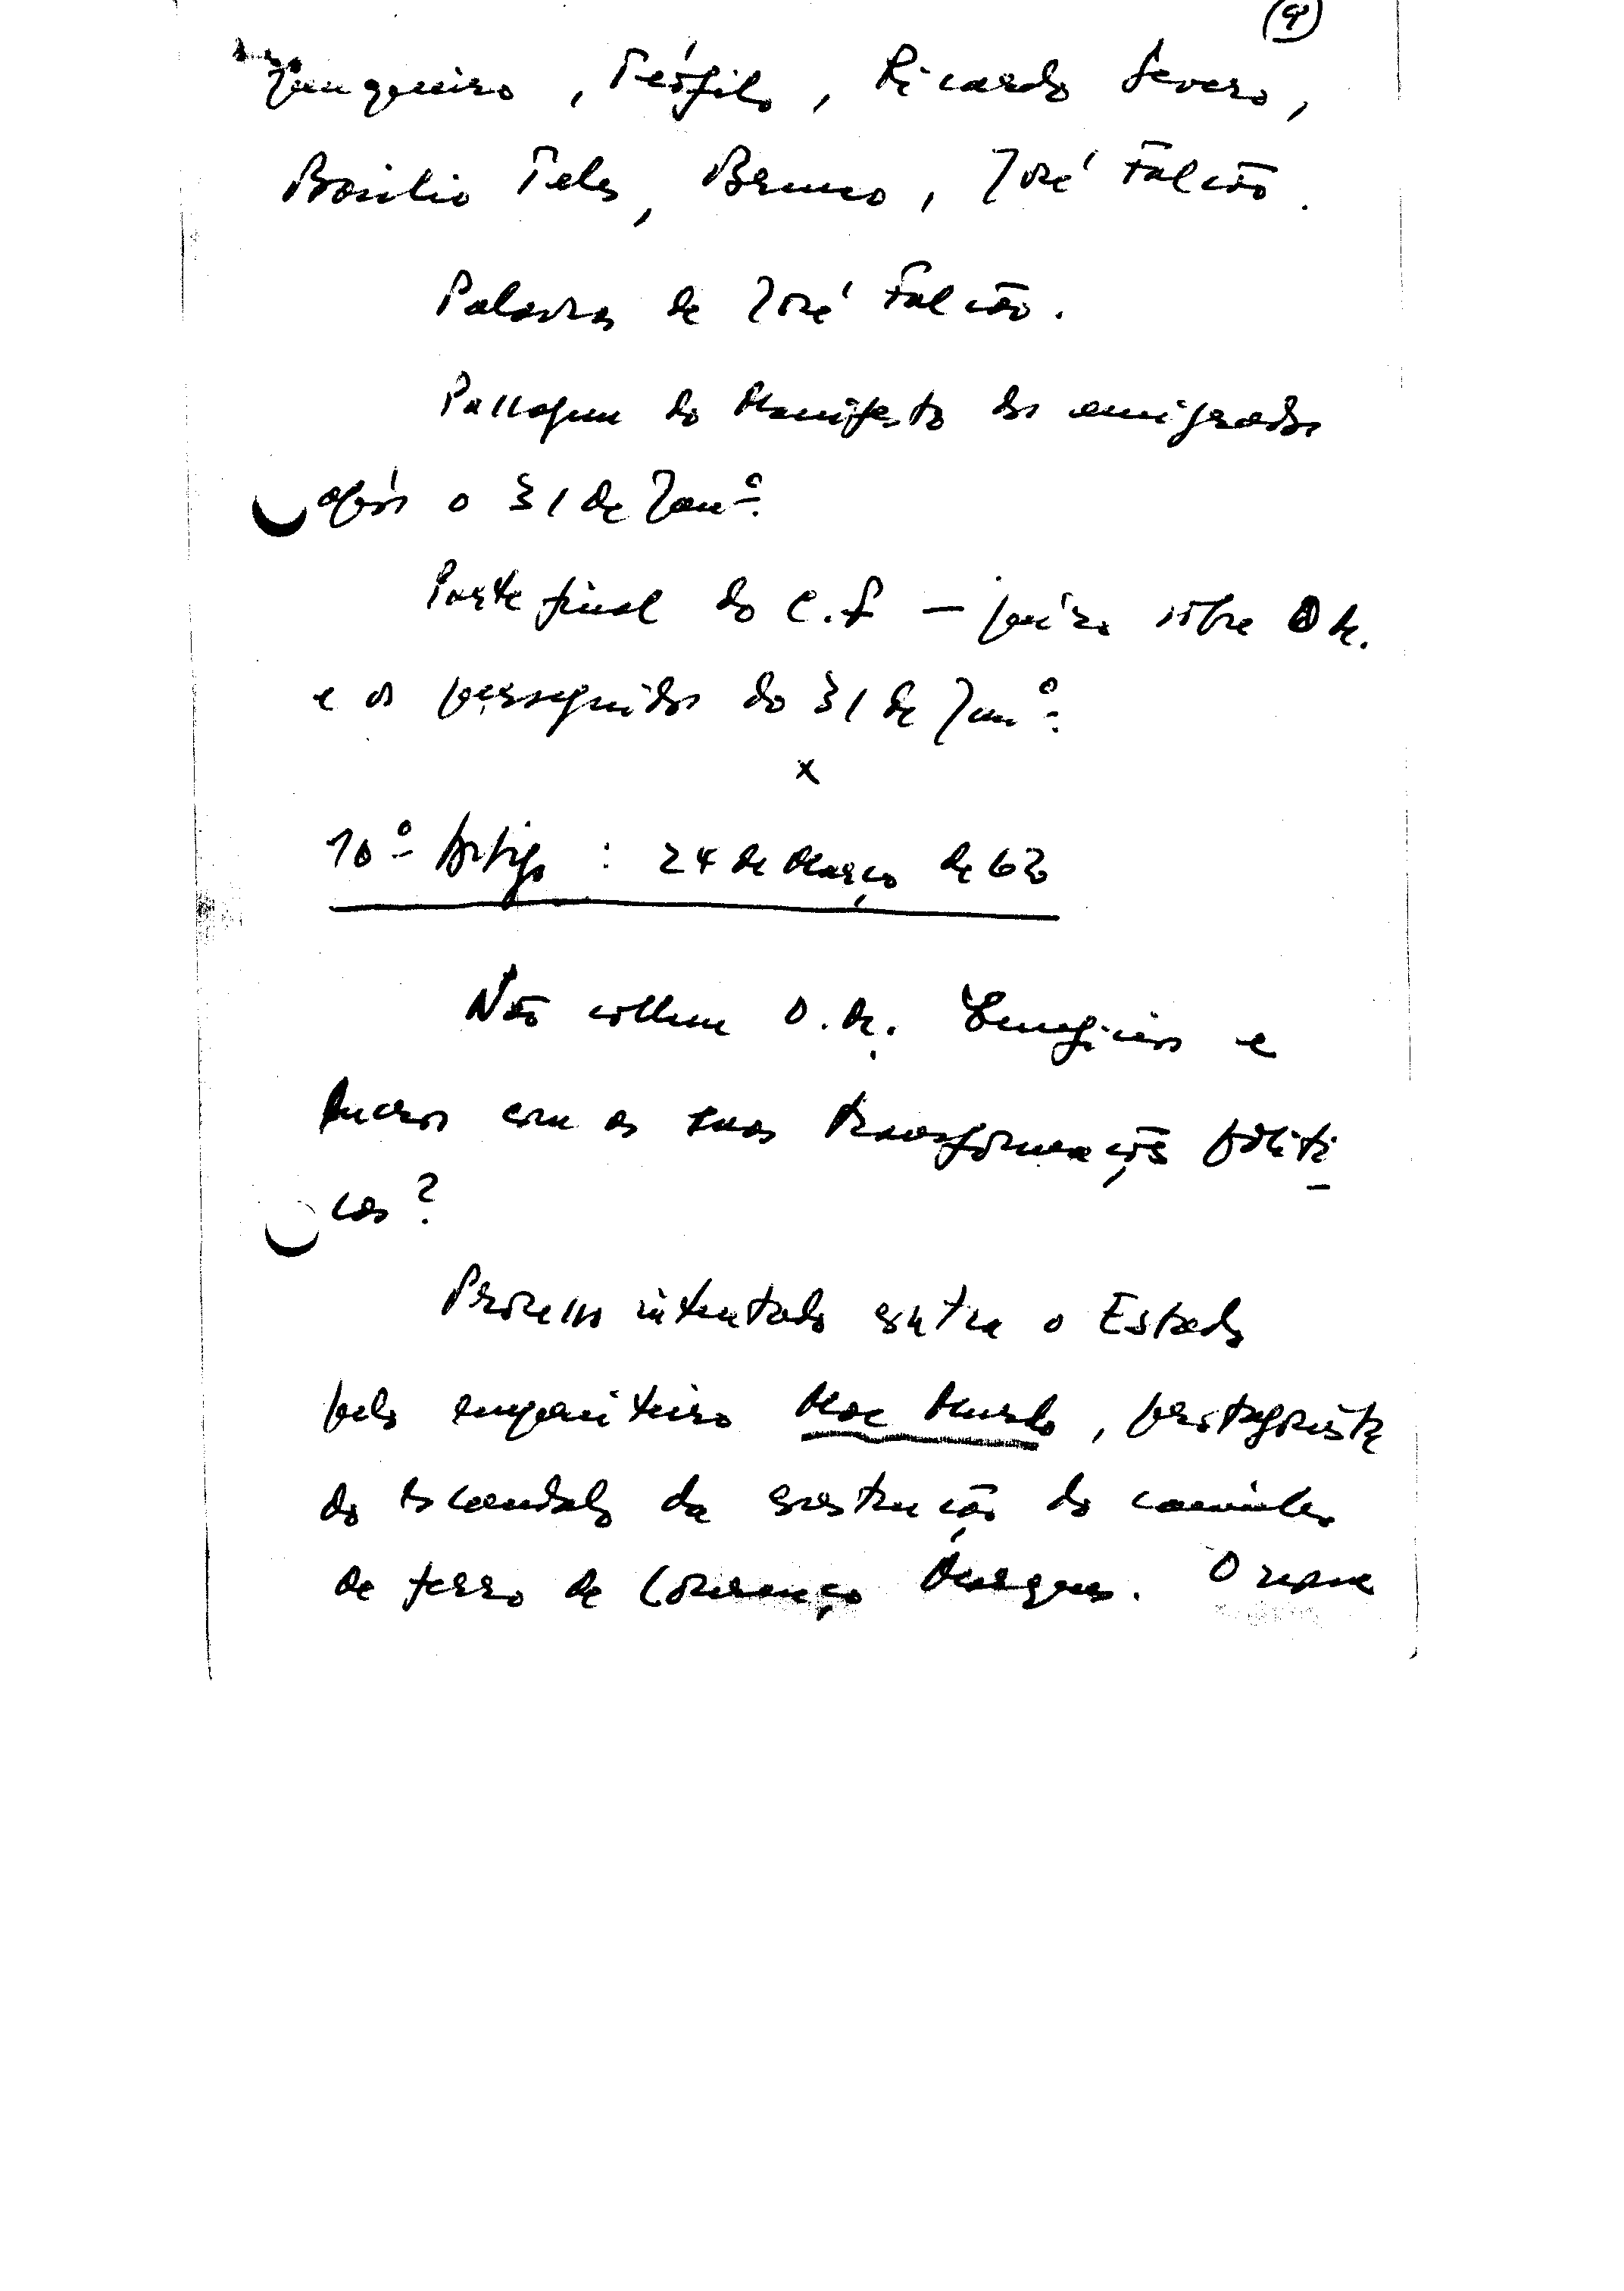 9
Junqueiro, Teófilo, Ricardo Severo,
Basílio Teles, Bruno, José Falcão.
Palavras de José Falcão.
Passagem do Manifesto dos emigrados
após o 31 de Janº.
Parte final do C.F — juízo sôbre O M.
e os perseguidos do 31 de Janº.
x
10º Artigo : 24 de Março de 62
Não colheu O. M. benefícios e
lucros com as suas transformações políti
cas?
Processo intentado contra o Estado
pelo empreiteiro Mac Murdo, protagonista
do escandalo da construção do caminho
de ferro de Lourenço Marques. O